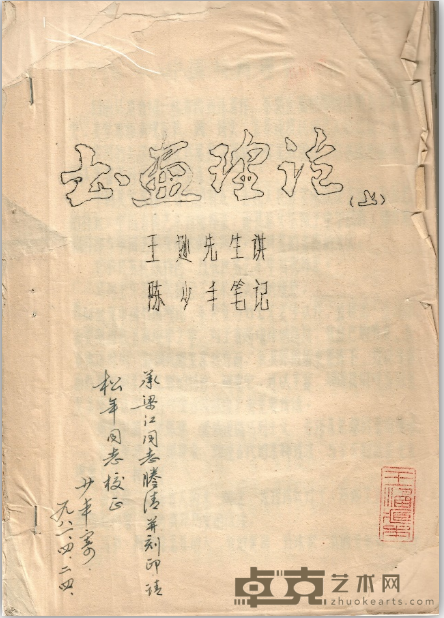 书畫理论(上)
王逊先生讲
陈少丰笔记
承梁江同志腾清并刻印请
松年同志校正
少丰寄
一九八一、四、二四、
卓克艺术网
zhuokearts.com